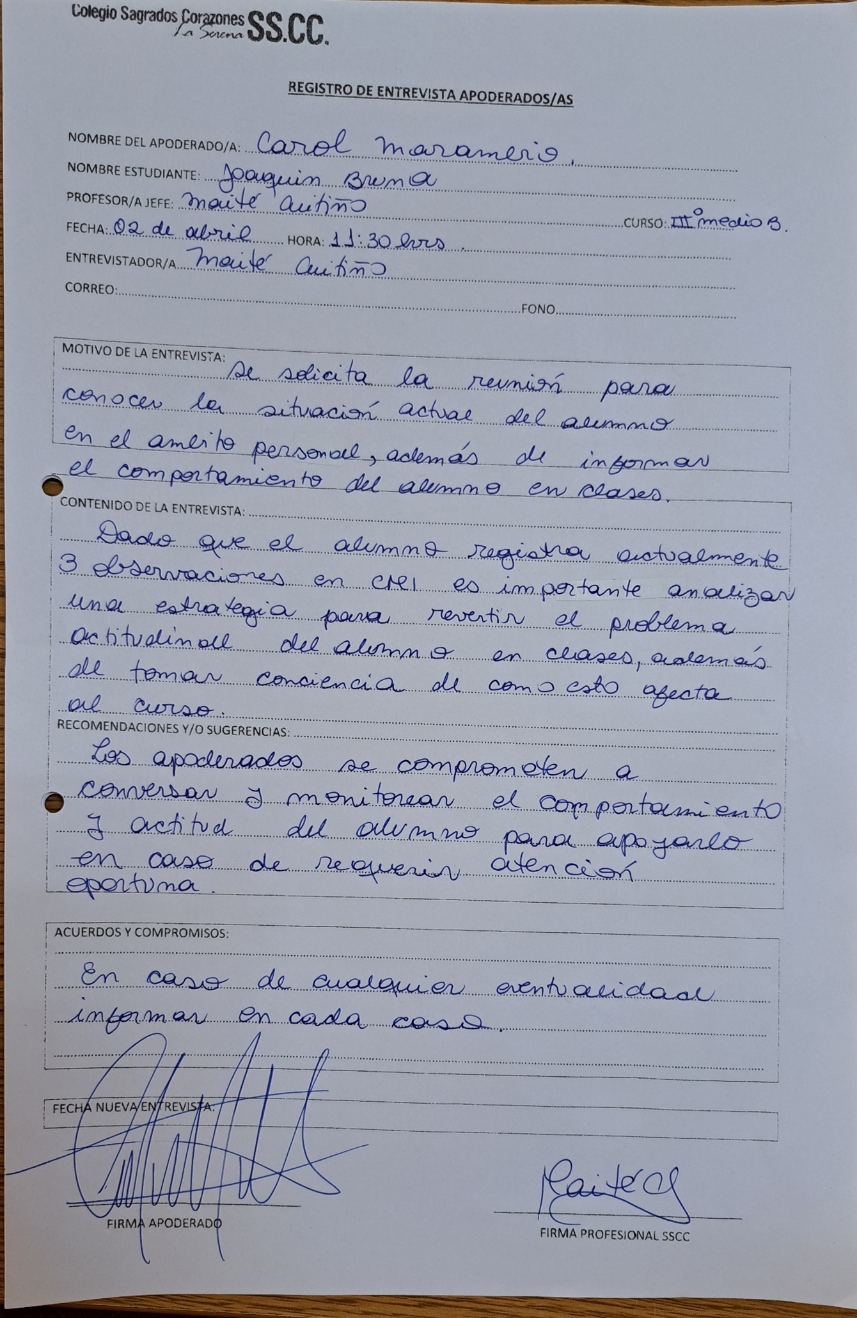 Colegio Sagrados Corazones SS.CC.
La Serena
REGISTRO DE ENTREVISTA APODERADOS/AS
NOMBRE DEL APODERADO/A: Carol
NOMBRE ESTUDIANTE: Joaquín Bruna
PROFESOR/A JEFE: Maité CURSO: III° medio B.
FECHA: 02 de abril HORA: 11:30 hrs.
ENTREVISTADOR/A Maité
CORREO: FONO
MOTIVO DE LA ENTREVISTA: Se solicita la reunión para
conocer la situación actual del alumno
en el ambito personal, además de informar
el comportamiento del alumno en clases.
CONTENIDO DE LA ENTREVISTA:
Dado que el alumno registra actualmente
3 observaciones en es importante analizar
una estrategia para revertir el problema
actitudinal del alumno en clases, además
de tomar conciencia de como esto afecta
al curso.
RECOMENDACIONES Y/O SUGERENCIAS:
Los apoderados se comprometen a
conversar y monitorear el comportamiento
y actitud del alumno para apoyarlo
en caso de requerir atención
oportuna.
ACUERDOS Y COMPROMISOS:
En caso de cualquier eventualidad
informar en cada caso.
FECHA NUEVA ENTREVISTA:
FIRMA APODERADO
FIRMA PROFESIONAL SSCC